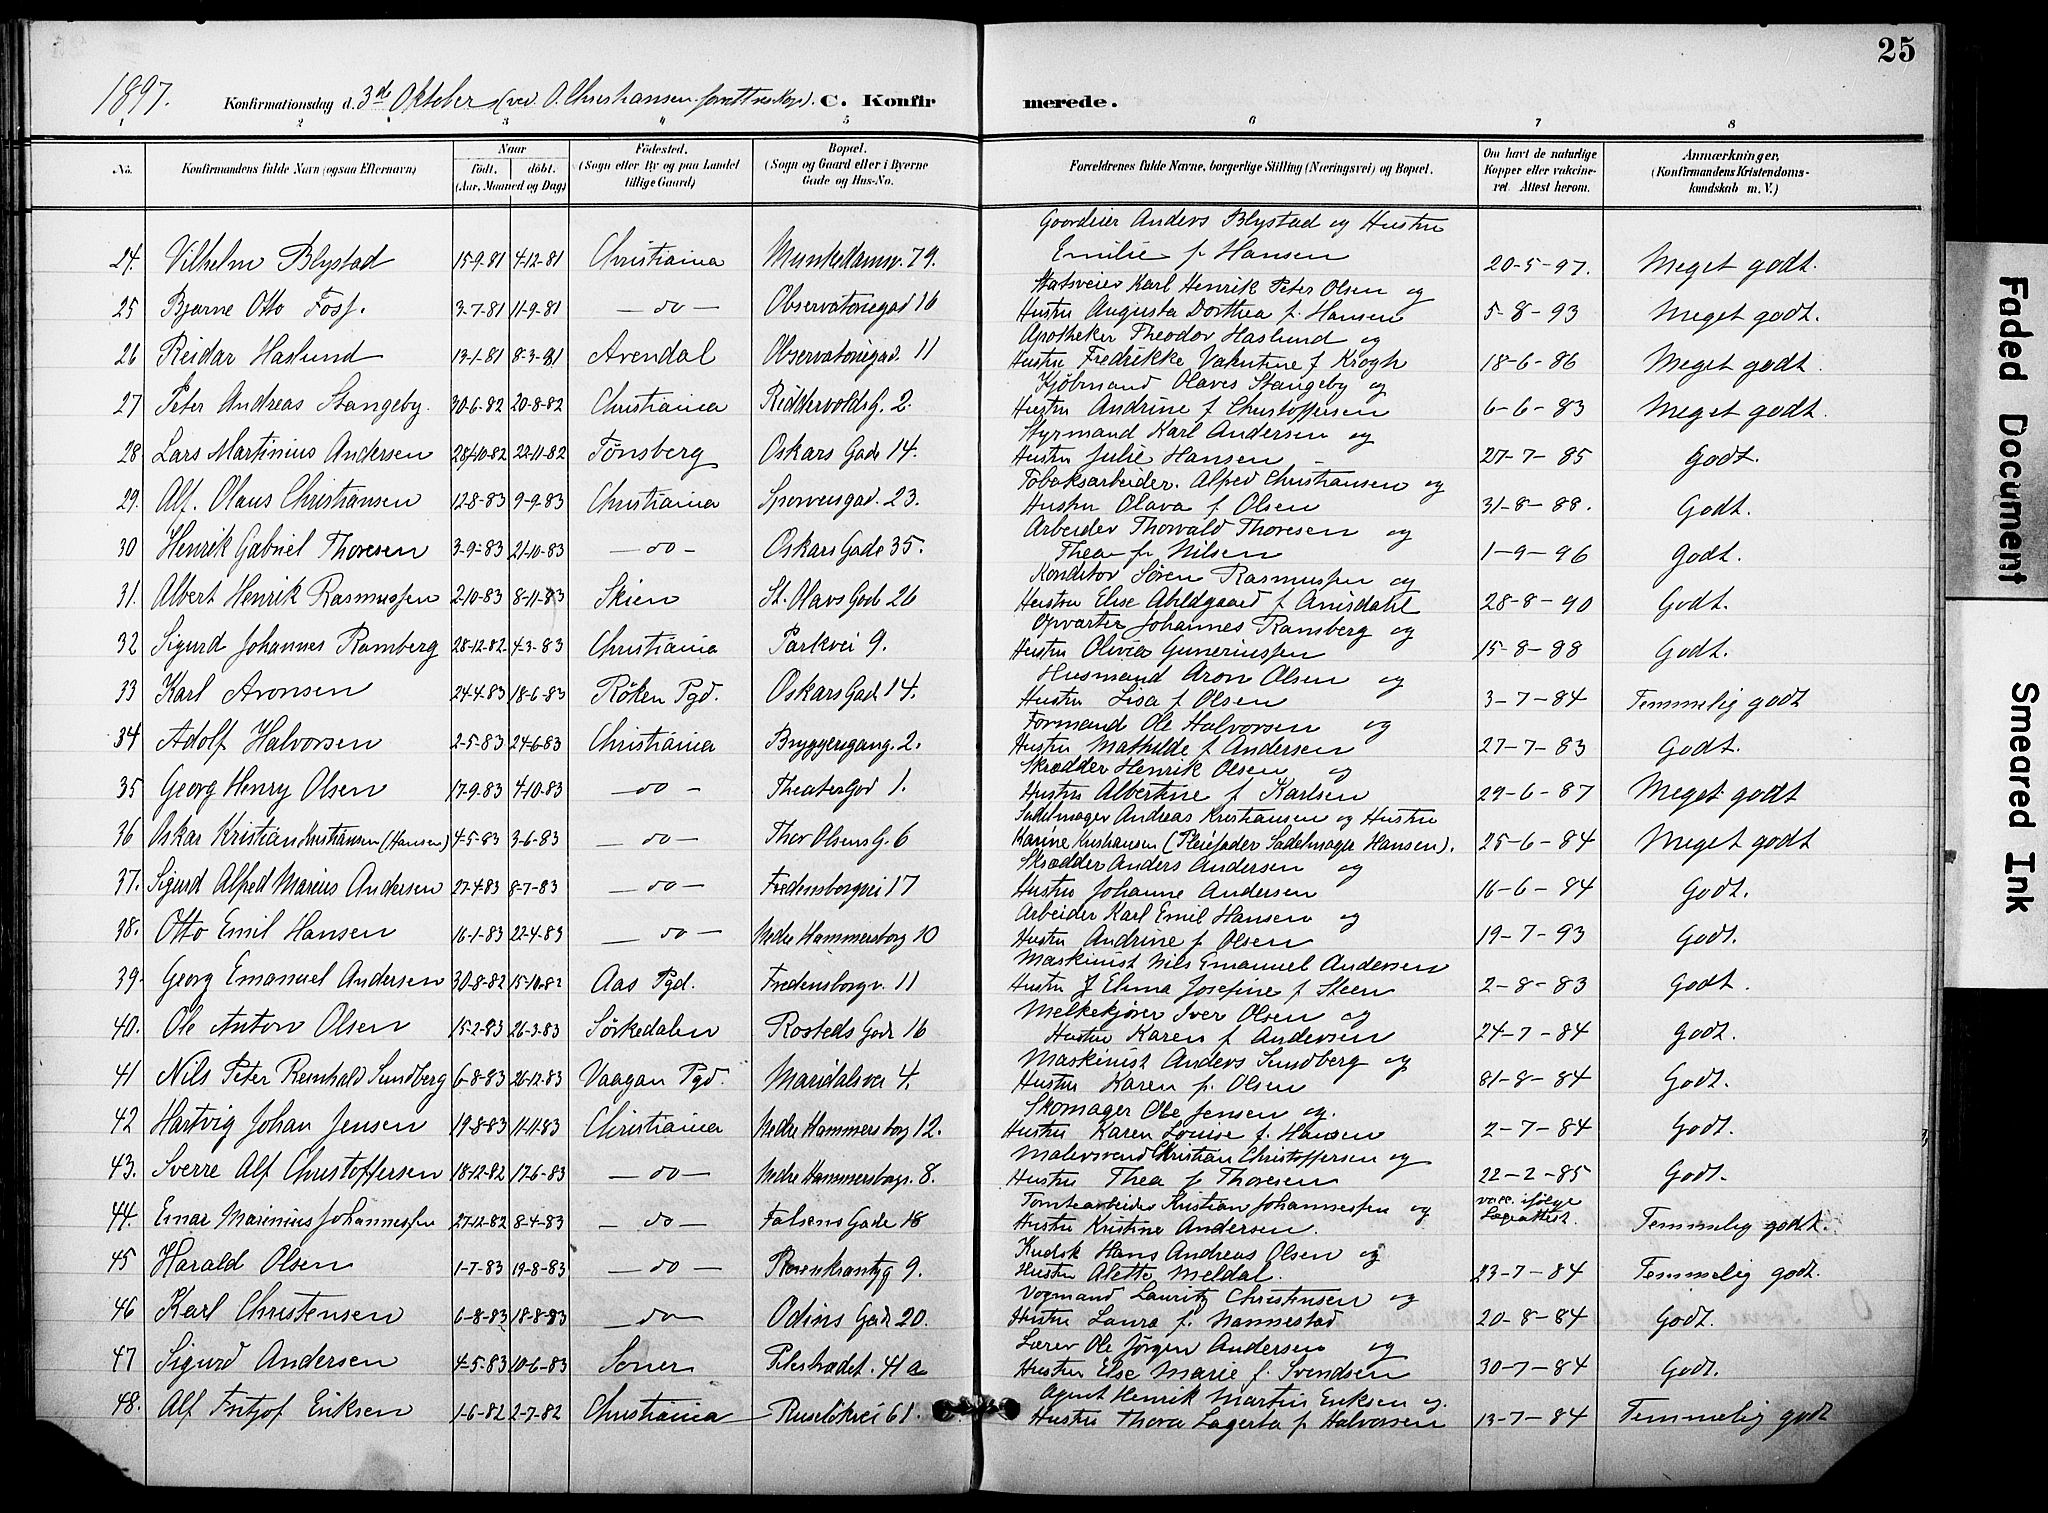 25
1897. Konfirmationsdag d. 3de Oktober (ved O. Christiansen ) C. Konfirmerede.
1 2 3 4 5 6 7 8
No. Konfirmandens fulde Navn (ogsaa Efternavn) Naar født. døbt. (Aar, Maaned og Dag) Fødested. (Sogn eller By og paa Landet tillige Gaard) Bopæl. (Sogn og Gaard eller i Byerne Gade og Hus-No. Forældrenes fulde Navne, borgerlige Stilling (Næringsvei) og Bopæl. Om havt de naturlige Kopper eller vakcineret. Attest herom. Anmærkninger, (Konfirmandens Kristendomskundskab m. V.)
Gaardeier Anders Blystad og Hustru
24. Vilhelm Blystad 15-9-81 4-12-81 Christiania Munkedamsv. 79. Emilie f. Hansen 20-5-97. Meget godt.
Karl Henrik Peter Olsen og
25 Bjarne Otto Foss. 3-7-81 11-9-81 -do- Observatoriegad 16 Hustru Augusta Dorthea f. Hansen 5-8-93 Meget godt.
Apotheker Theodor Haslund og
26 Reidar Haslund 13-1-81 8-3-81 Arendal Observatoriegad. 11 Hustru Fredrikke Valentine f Krogh 18-6-86 Meget godt.
Kjøbmand Olaves Stangeby og
27 Peter Andreas Stangeby. 30-6-82 20-8-82 Christiania RiddervoldsG. 2. Hustru Andrine f Christoffersen 6-6-83 Meget godt.
Styrmand Karl Andersen og
28 Lars Martinius Andersen 28-10-82 22-11-82 Tønsberg Oskars Gade 14. Hustru Julie Hansen 27-7-85 Godt.
Tobaksarbeider. Alfred Christiansen og
29. Alf. Olaus Christiansen 12-8-83 9-9-83 Christiania Sporveisgad. 23. Hustru Olava f Olsen 31-8-88. Godt.
Arbeider Thorvald Thoresen og
30 Henrik Gabriel Thoresen 3-9-83 21-10-83 -do- Oskars Gade 35. Thea f. Nilsen 1-9-96 Godt.
Konditor Søren Rasmussen og
31. Albert Henrik Rasmussen 2-10-83 8-11-83 Skien St. Olavs Gad 26 Hustru Elise Abildgaard f Arnsdahl 28-8-90 Godt.
Opvarter Johannes Ramberg og
32 Sigurd Johannes Ramberg 28-12-82 4-3-83 Christiania Parkvei 9. Hustru Olivia Guneriussen 15-8-88 Godt.
Husmand Aron Olsen og
33 Karl Aronsen 24-4-83 18-6-83 Røken Pgd. Oskars Gad. 14. Hustru Lisa f Olsen 3-7-84 Temmelig godt
Formand Ole Halvorsen og
34 Adolf Halvorsen 2-5-83 24-6-83 Christiania Bryggerigang. 2. Hustru Mathilde f Andersen 27-7-83 Godt.
Skrædder Henrik Olsen og
35 Georg Henry Olsen 17-9-83 4-10-83 -do- TheaterGad 1. Hustru Albertine f Karlsen 29-6-87 Meget godt
Sadelmager Andreas Kristiansen og Hustru
36 Oskar Kristian Kristiansen (Hansen) 4-5-83 3-6-83 -do- Thor Olsens G. 6 Karine Kristiansen (Pleiefader Sadelmager Hansen). 25-6-84 Meget godt
Skrædder Anders Andersen og
37. Sigurd Alfred Marius Andersen 27-4-83 8-7-83 -do- Fredensborgvei 17 Hustru Johanne Andersen 16-6-84 Godt.
Arbeider Karl Emil Hansen og
38. Otto Emil Hansen 16-1-83 22-4-83 -do- Nedre Hammersborg 10 Hustru Andrine f Olsen 19-7-93 Godt.
Maskinist Nils Emanuel Andersen
39. Georg Emanuel Andersen 30-8-82 15-10-82 Aas Pgd. Fredensborgv. 11 Hustru J Elima Josefine f Steen 2-8-83 Godt.
Melkekjører Iver Olsen og
40. Ole Anton Olsen 15-2-83 26-3-83 Sørkedalen Rosteds Gade 16 Hustru Karen f Andersen 24-7-84 Godt.
Maskinist Anders Sundberg og
41 Nils Peter Reinhald Sundberg 6-8-83 26-12-83 Vaagan Pgd. Maridalsvei 4. Hustru Karen f. Olsen 31-8-84 Godt.
Skomager Ole Jensen og.
42 Hartvig Johan Jensen 19-8-83 11-11-83 Christiania Nedre Hammersborg 12. Hustru Karen Louise f. Hansen 2-7-84 Godt.
Malersvend Kristian Christoffersen og
43. Sverre Alf Christoffersen 18-12-82 17-6-83 -do- Nedre Hammersborg. 8. Hustru Thea f Thoresen 22-2-85 Godt.
Tomtearbeider Kristian Johannessen og vacc. ifølge
44. Einar Marinius Johannessen 27-12-82 8-4-83 -do- Falsens Gade 18 Hustru Kristine Andersen. Lægeattest. Temmelig godt.
Kudsk Hans Andreas Olsen og
45 Harald Olsen 1-7-83 19-8-83 -do- Rosenkrantzg 9. Hustru Alette Meldal. 23-7-84 Temmelig godt.
Vognmand Lauritz Christensen og
46 Karl Christensen 6-8-83 18-8-83 -do- Odins Gade 20. Hustru Laura f. Nannestad 20-8-84 Godt.
Lærer Ole Jørgen Andersen og
47 Sigurd Andersen 4-5-83 10-6-83 Soner Pilestrædet. 41a Hustru Else Marie f. Svendsen 30-7-84 Godt.
Agent Henrik Martin Eriksen og.
48. Alf Fritjof Eriksen 1-6-82 2-7-82 Christiania Ruseløkvei 61. Hustru Thora Lagerta f Halvorsen 13-7-84 Temmelig godt
Faded Document
Smeared Ink